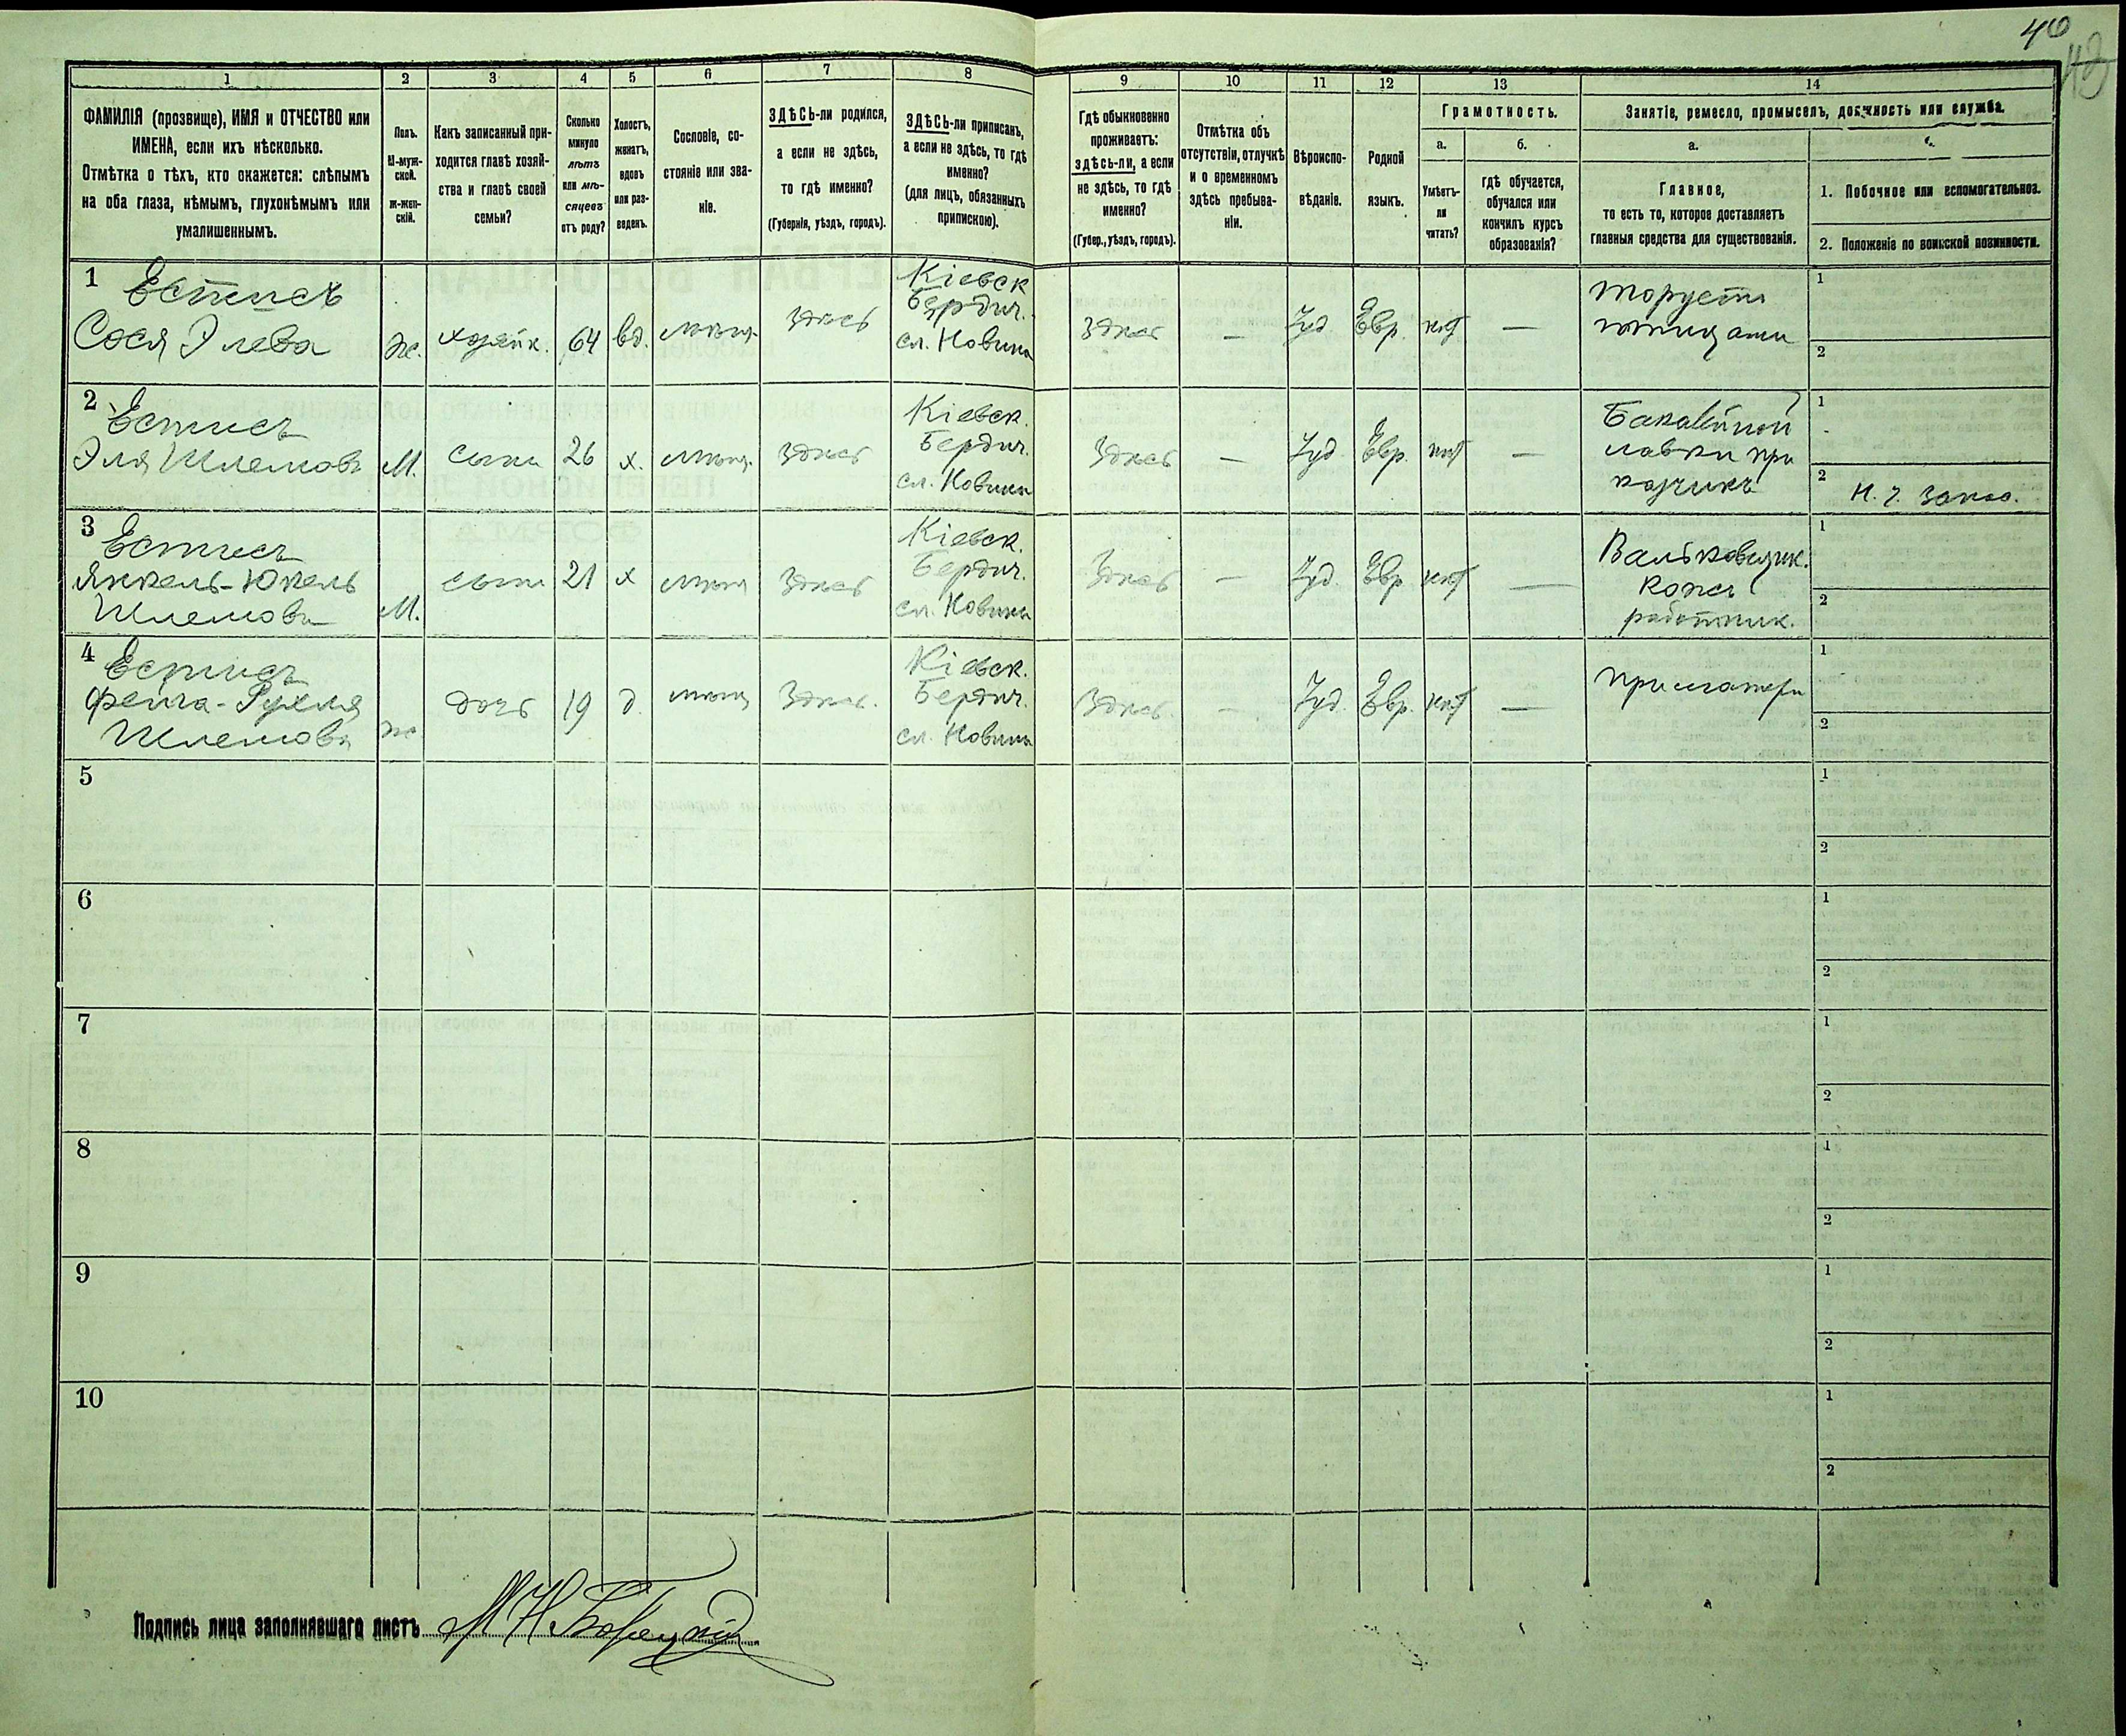 40
1 2 3 4 5 6 7 8 9 10 11 12 13 14
ФАМИЛІЯ (прозвище), ИМЯ и ОТЧЕСТВО или
ИМЕНА, если ихъ нѣсколько.
Отмѣтка о тѣхъ, кто окажется: слѣпымъ
на оба глаза, нѣмымъ, глухонѣмымъ или
умалишеннымъ.
Полъ.
М-муж-
ской.
ж-жен-
скій.
Какъ записанный при-
ходится главѣ хозяй-
ства и главѣ своей
семьи?
Сколько
минуло
лѣтъ
или мѣ-
сяцевъ
отъ роду?
Холостъ,
женатъ,
вдовъ
или раз-
веденъ.
Сословіе, со-
стояніе или зва-
ніе.
ЗДѢСЬ-ли родился,
а если не здѣсь,
то гдѣ именно?
(Губернія, уѣздъ, городъ).
ЗДѢСЬ-ли приписанъ,
а если не здѣсь, то гдѣ
именно?
(для лицъ, обязанныхъ
припискою).
Гдѣ обыкновенно
проживаетъ:
здѣсь-ли, а если
не здѣсь, то гдѣ
именно?
(Губер., уѣздъ, городъ).
Отмѣтка объ
отсутствіи, отлучкѣ
и о временномъ
здѣсь пребыва-
ніи.
Вѣроиспо-
вѣданіе.
Родной
языкъ.
Грамотность.
а.
Умѣетъ-
ли
читать?
б.
гдѣ обучается,
обучался или
кончилъ курсъ
образованія?
Занятіе, ремесло, промыселъ, должность или служба.
а.
Главное,
то есть то, которое доставляетъ
главныя средства для существованія.
1. Побочное или вспомогательное.
2. Положеніе по воинской повинности.
1 Естисъ
Сося Элева
ж.
хозяйк.
64
вд.
мѣщ.
здѣсь
Кіевск
Бердич.
сл. Новики
здѣсь
—
Іуд.
Евр.
нѣт
—
торуетъ
птицами
1
2
2 Естисъ
Эля Шлемовъ
М.
сынъ
26
х.
мѣщ.
здѣсь
Кіевск.
Бердич.
сл. Новики
Здѣсь
—
Іуд
Евр.
нѣт
—
Бакалѣйной
лавки при
кащикъ
1
2
3 Естисъ
Янкель-Юкель
Шлемовъ
М.
сынъ
21
х
мѣщ
Здѣсь
Кіевск.
Бердич.
сл. Новики
Здѣсь
—
Іуд.
Евр
нѣт
—
Вальковщик.
кожъ
работник.
1
2
4 Естисъ
Фейга-Рухля
Шлемова
ж
дочь
19
д.
мѣщ
Здѣсь.
Кіевск.
Бердич.
сл. Новики
Здѣсь.
—
Іуд.
Евр.
нѣт
—
При матери
1
2
5
1
2
6
1
2
7
1
2
8
1
2
9
1
2
10
1
2
Подпись лица заполнявшаго листъ